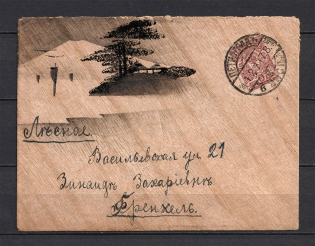 Лѣсное.
Васильевская ул 21
Зинаидѣ Захаріевнѣ
Френкель.